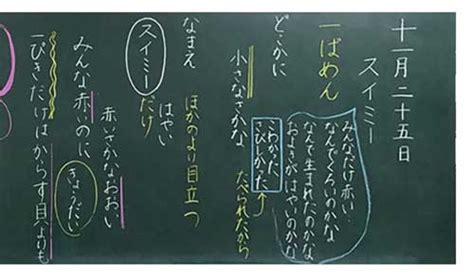 十一月二十五日
スイミー
一ばめん
みんなだけ赤い
なんでくろいのかな
およぎがはやいのかな
なんで生まれたのかな
こわかった
さびしかった
たべられたから
どこかに
小さなさかな
ほかのより目立つ
なまえ
はやい
スイミーだけ
赤いさかなおおい
みんな赤いのに
きょうだい
一ぴきだけはからす貝よりも